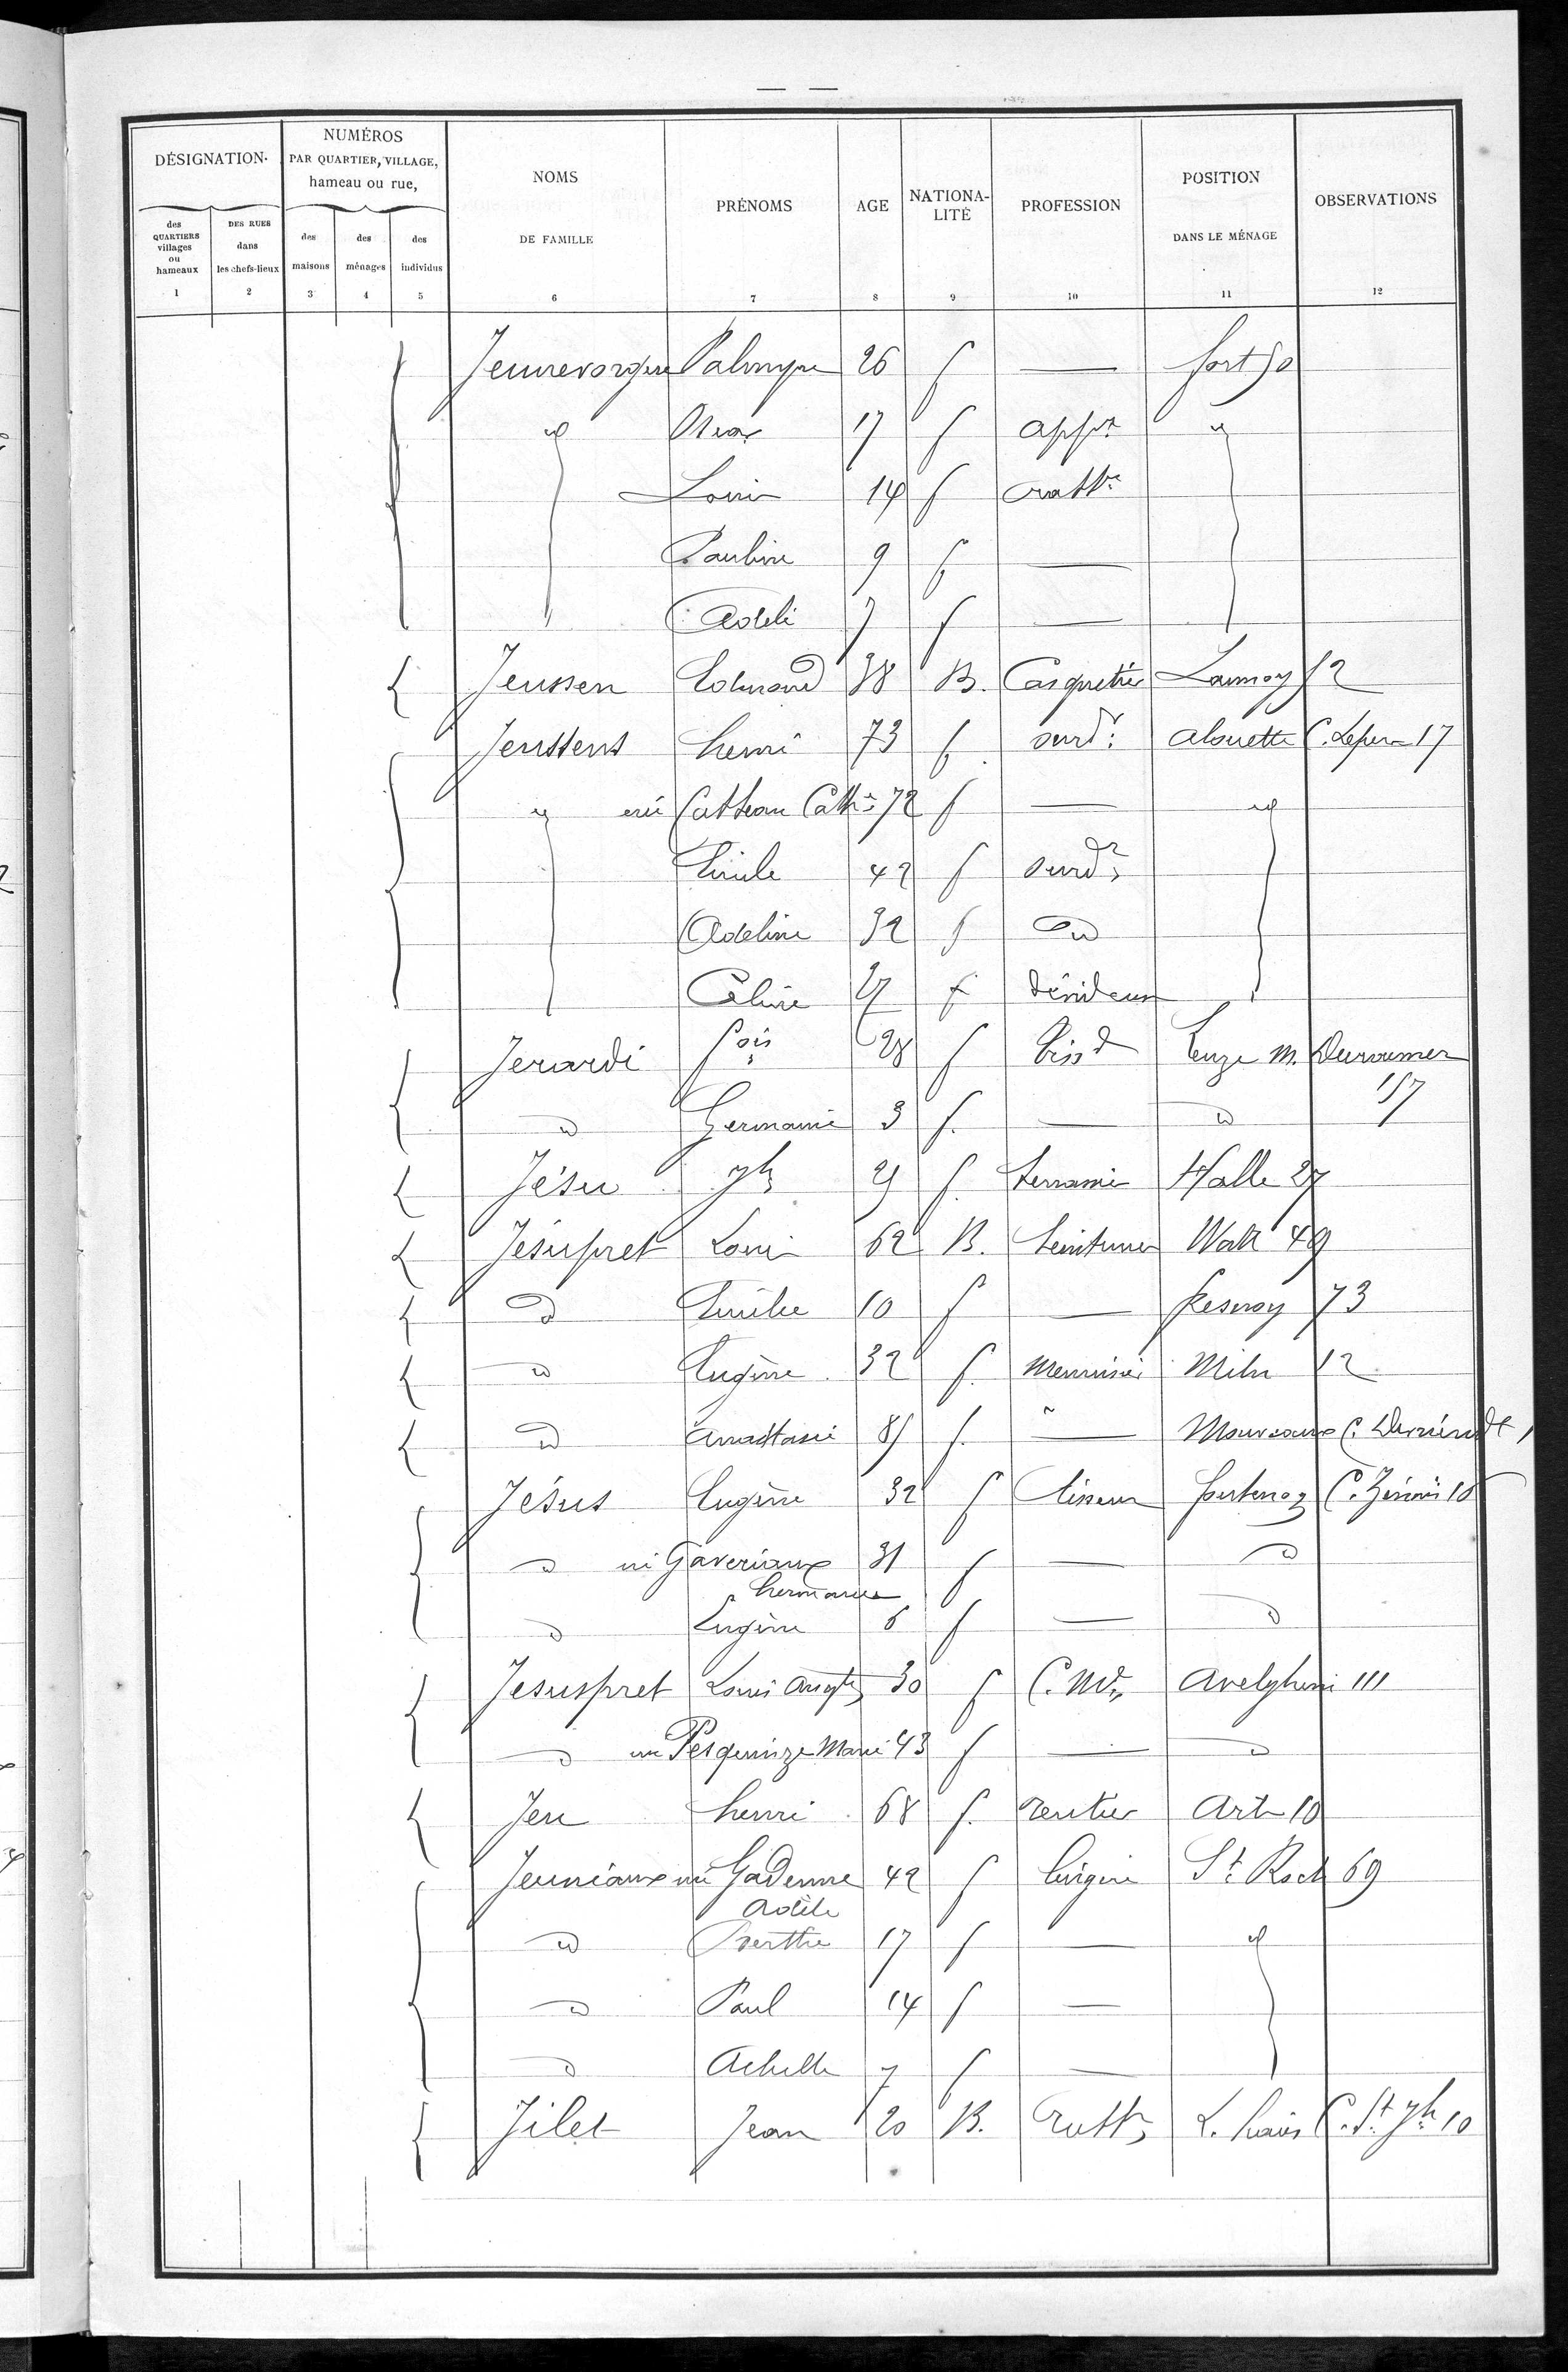 DÉSIGNATION.
NUMÉROS
PAR QUARTIER, VILLAGE,
hameau ou rue,
NOMS
DE FAMILLE
PRÉNOMS
AGE
NATIONA-
LITÉ
PROFESSION
POSITION
DANS LE MÉNAGE
OBSERVATIONS
des
QUARTIERS
villages
ou
hameaux
DES RUES
dans
les chefs-lieux
des
maisons
des
ménages
des
individus
1 2 3 4 5 6 7 8 9 10 11 12
Palmyre 26 f — fort
id 17 f appr id
Louis 14 f ratt
Pauline 9 f —
Adèle 7 f —
Jenssen Edmond 38 B. Casquetier Lannoy 52
Jenssens henri 73 f ourd. alouette C. 17
id née Catteau Cathe 72 f — id
Emile 42 f ourd
Adeline 32 f d
Céline 27 f dévideuse
Jerardi fois 28 f tissd Leuze M. Duvaumer
157
d Germaine 3 f. — d
Jésu Jh f. terrassier Halle 27
Jésupret Louis 62 B. teinturier Watt 49
d Emilie 10 f — fresnoy 73
d Eugène 32 f. Menuisier Mehu 12
d Anastasie f. — Mouveaux C.
Jésus Eugène 32 f tisseur fontenoy C. 10
d née Gaveriaux 31 f — d
hermance
d Eugène 6 f — d
Jesuspret Louis Augte 30 f C. Md Avelghem 111
d née Marie 43 f — d
Jeu henri 68 f. rentier Art 10
Jeuniaux née Gadenne 42 f St Roch 69
Adèle
d Berthe 17 f — id
d Paul 14 f —
d Achille 7 f —
Jilet Jean 20 B. ratt L. haies C. St Jh 10